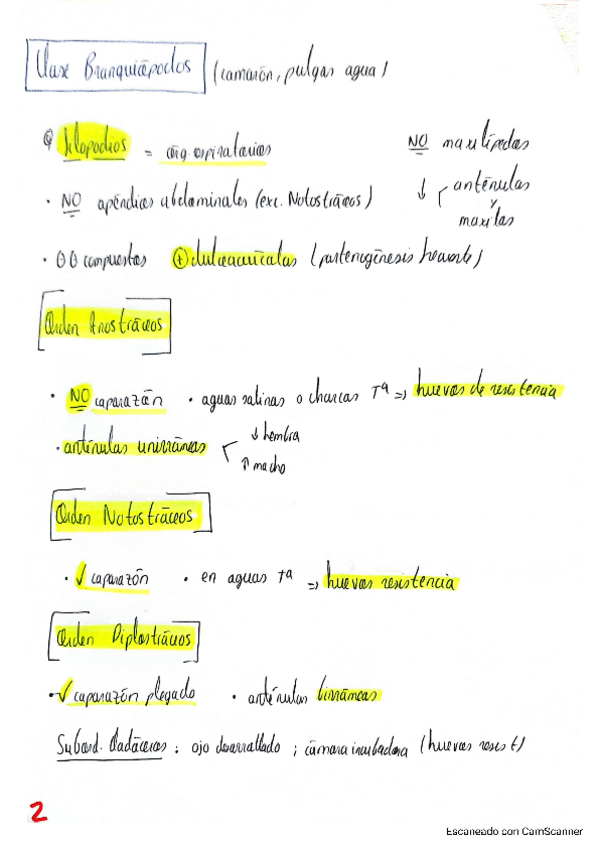 Clase Branquiópodos (camarón, pulgas agua)
filopodios = órg. respiratorios
NO maxilípedos
· NO apéndices abdominales (exc. Notostráceos)
↓ anténulas y maxilas
· OO compuestos ⊕ dulceacuícolas (partenogénesis
Orden Anostráceos
· NO caparazón · aguas salinas o charcas Tª => huevos de resistencia
· anténulas unirrámeas
↓ hembra
↑ macho
Orden Notostráceos
· ✓ caparazón · en aguas Tª => huevos resistencia
Orden Diplostráceos
· ✓ caparazón plegado · anténulas birrámeas
Subord. Cladóceros: ojo desarrollado; cámara incubadora (huevos resist)
2
Escaneado con CamScanner